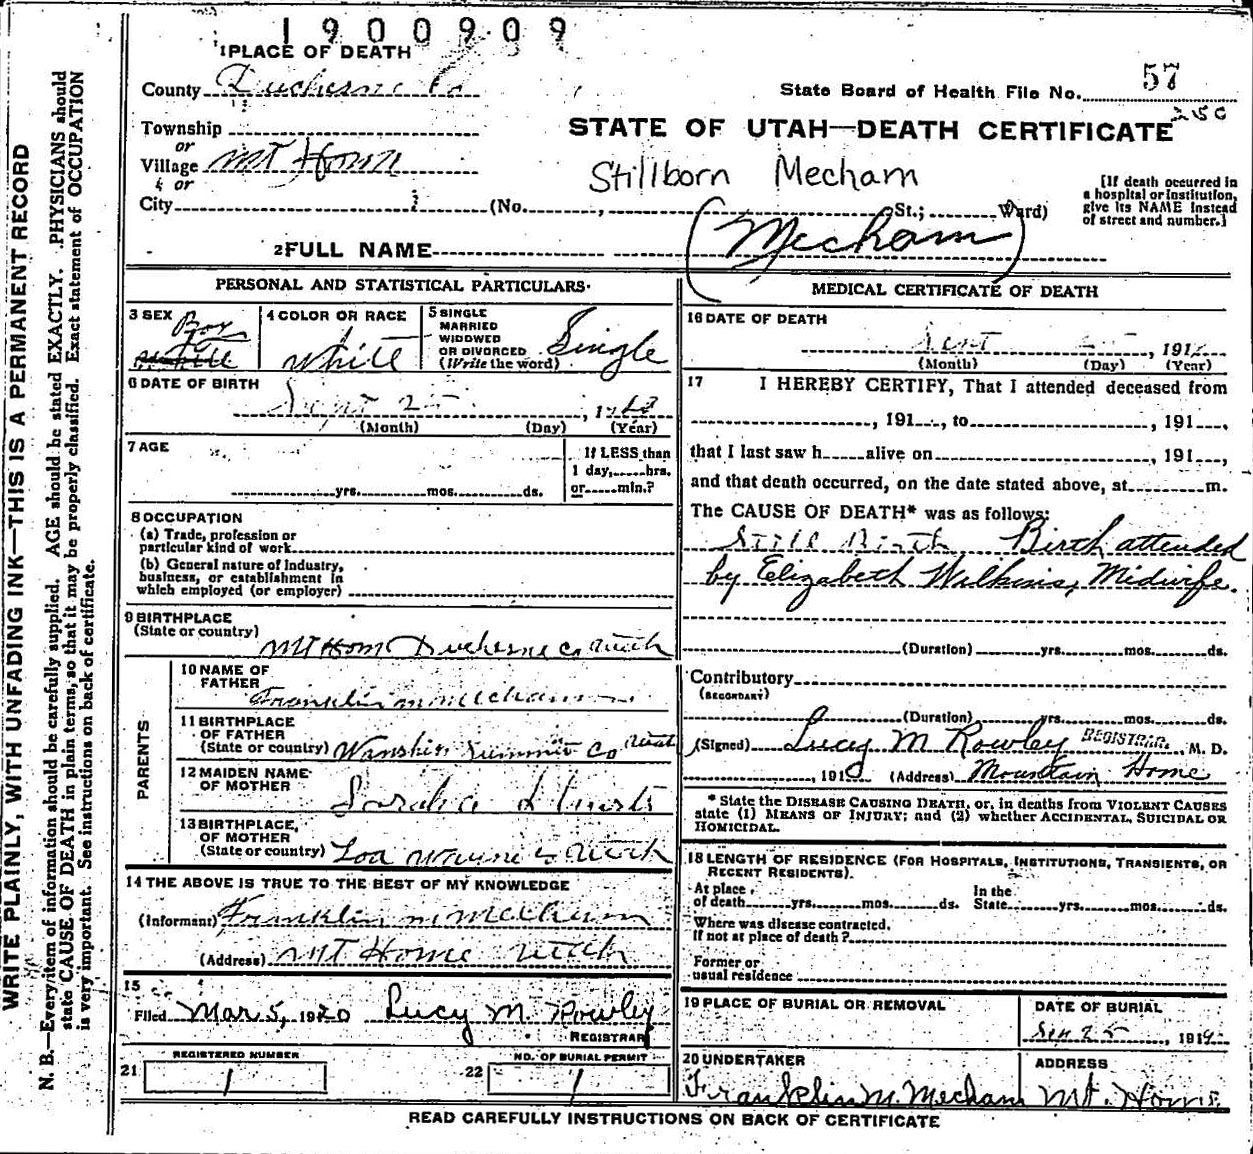 1900909
1 PLACE OF DEATH
County Duchesne Co
State Board of Health File No. 57
250
Township
or
Village Mt Home
or
City (No. , St.; Ward)
STATE OF UTAH—DEATH CERTIFICATE
Stillborn Mecham
[If death occurred in
a hospital or institution,
give its NAME instead
of street and number.]
2 FULL NAME (Mecham)
PERSONAL AND STATISTICAL PARTICULARS
3 SEX Boy
White
4 COLOR OR RACE
White
5 SINGLE
MARRIED
WIDOWED
OR DIVORCED
(Write the word) Single
6 DATE OF BIRTH
Sept 25, 19
(Month) (Day) (Year)
7 AGE
yrs. mos. ds.
If LESS than
1 day, hrs.
or min.?
8 OCCUPATION
(a) Trade, profession or
particular kind of work
(b) General nature of Industry,
business, or establishment in
which employed (or employer)
9 BIRTHPLACE
(State or country) Mt Home Duchesne Co Utah
PARENTS
10 NAME OF
FATHER
Franklin M Mecham
11 BIRTHPLACE
OF FATHER
(State or country) Wanship Summit Co Utah
12 MAIDEN NAME
OF MOTHER
13 BIRTHPLACE,
OF MOTHER
(State or country) Loa Wayne Co Utah
14 THE ABOVE IS TRUE TO THE BEST OF MY KNOWLEDGE
(Informant) Franklin M Mecham
(Address) Mt Home Utah
15
Filed Mar 5, 1920 Lucy M. Rowley
REGISTRAR
21 REGISTERED NUMBER
1
22 NO. OF BURIAL PERMIT
1
MEDICAL CERTIFICATE OF DEATH
16 DATE OF DEATH
Sept 25, 191
(Month) (Day) (Year)
17 I HEREBY CERTIFY, That I attended deceased from
, 191 , to , 191 ,
that I last saw h alive on , 191 ,
and that death occurred, on the date stated above, at m.
The CAUSE OF DEATH* was as follows:
Still Birth Birth attended
by Elizabeth Wilkins, Midwife.
(Duration) yrs. mos. ds.
Contributory
(SECONDARY)
(Duration) yrs. mos. ds.
(Signed) Lucy M Rowley REGISTRAR, M. D.
, 191 (Address) Mountain Home
* State the DISEASE CAUSING DEATH, or, in deaths from VIOLENT CAUSES
state (1) MEANS OF INJURY; and (2) whether ACCIDENTAL, SUICIDAL OR
HOMICIDAL.
18 LENGTH OF RESIDENCE (FOR HOSPITALS, INSTITUTIONS, TRANSIENTS, OR
RECENT RESIDENTS).
At place
of death yrs. mos. ds.
In the
State yrs. mos. ds.
Where was disease contracted,
If not at place of death?
Former or
usual residence
19 PLACE OF BURIAL OR REMOVAL
DATE OF BURIAL
Sep 25, 191
20 UNDERTAKER
Franklin M. Mecham
ADDRESS
Mt. Home.
READ CAREFULLY INSTRUCTIONS ON BACK OF CERTIFICATE
WRITE PLAINLY, WITH UNFADING INK—THIS IS A PERMANENT RECORD
N. B.—Every item of information should be carefully supplied. AGE should be stated EXACTLY. PHYSICIANS should
state CAUSE OF DEATH in plain terms, so that it may be properly classified. Exact statement of OCCUPATION
is very important. See instructions on back of certificate.